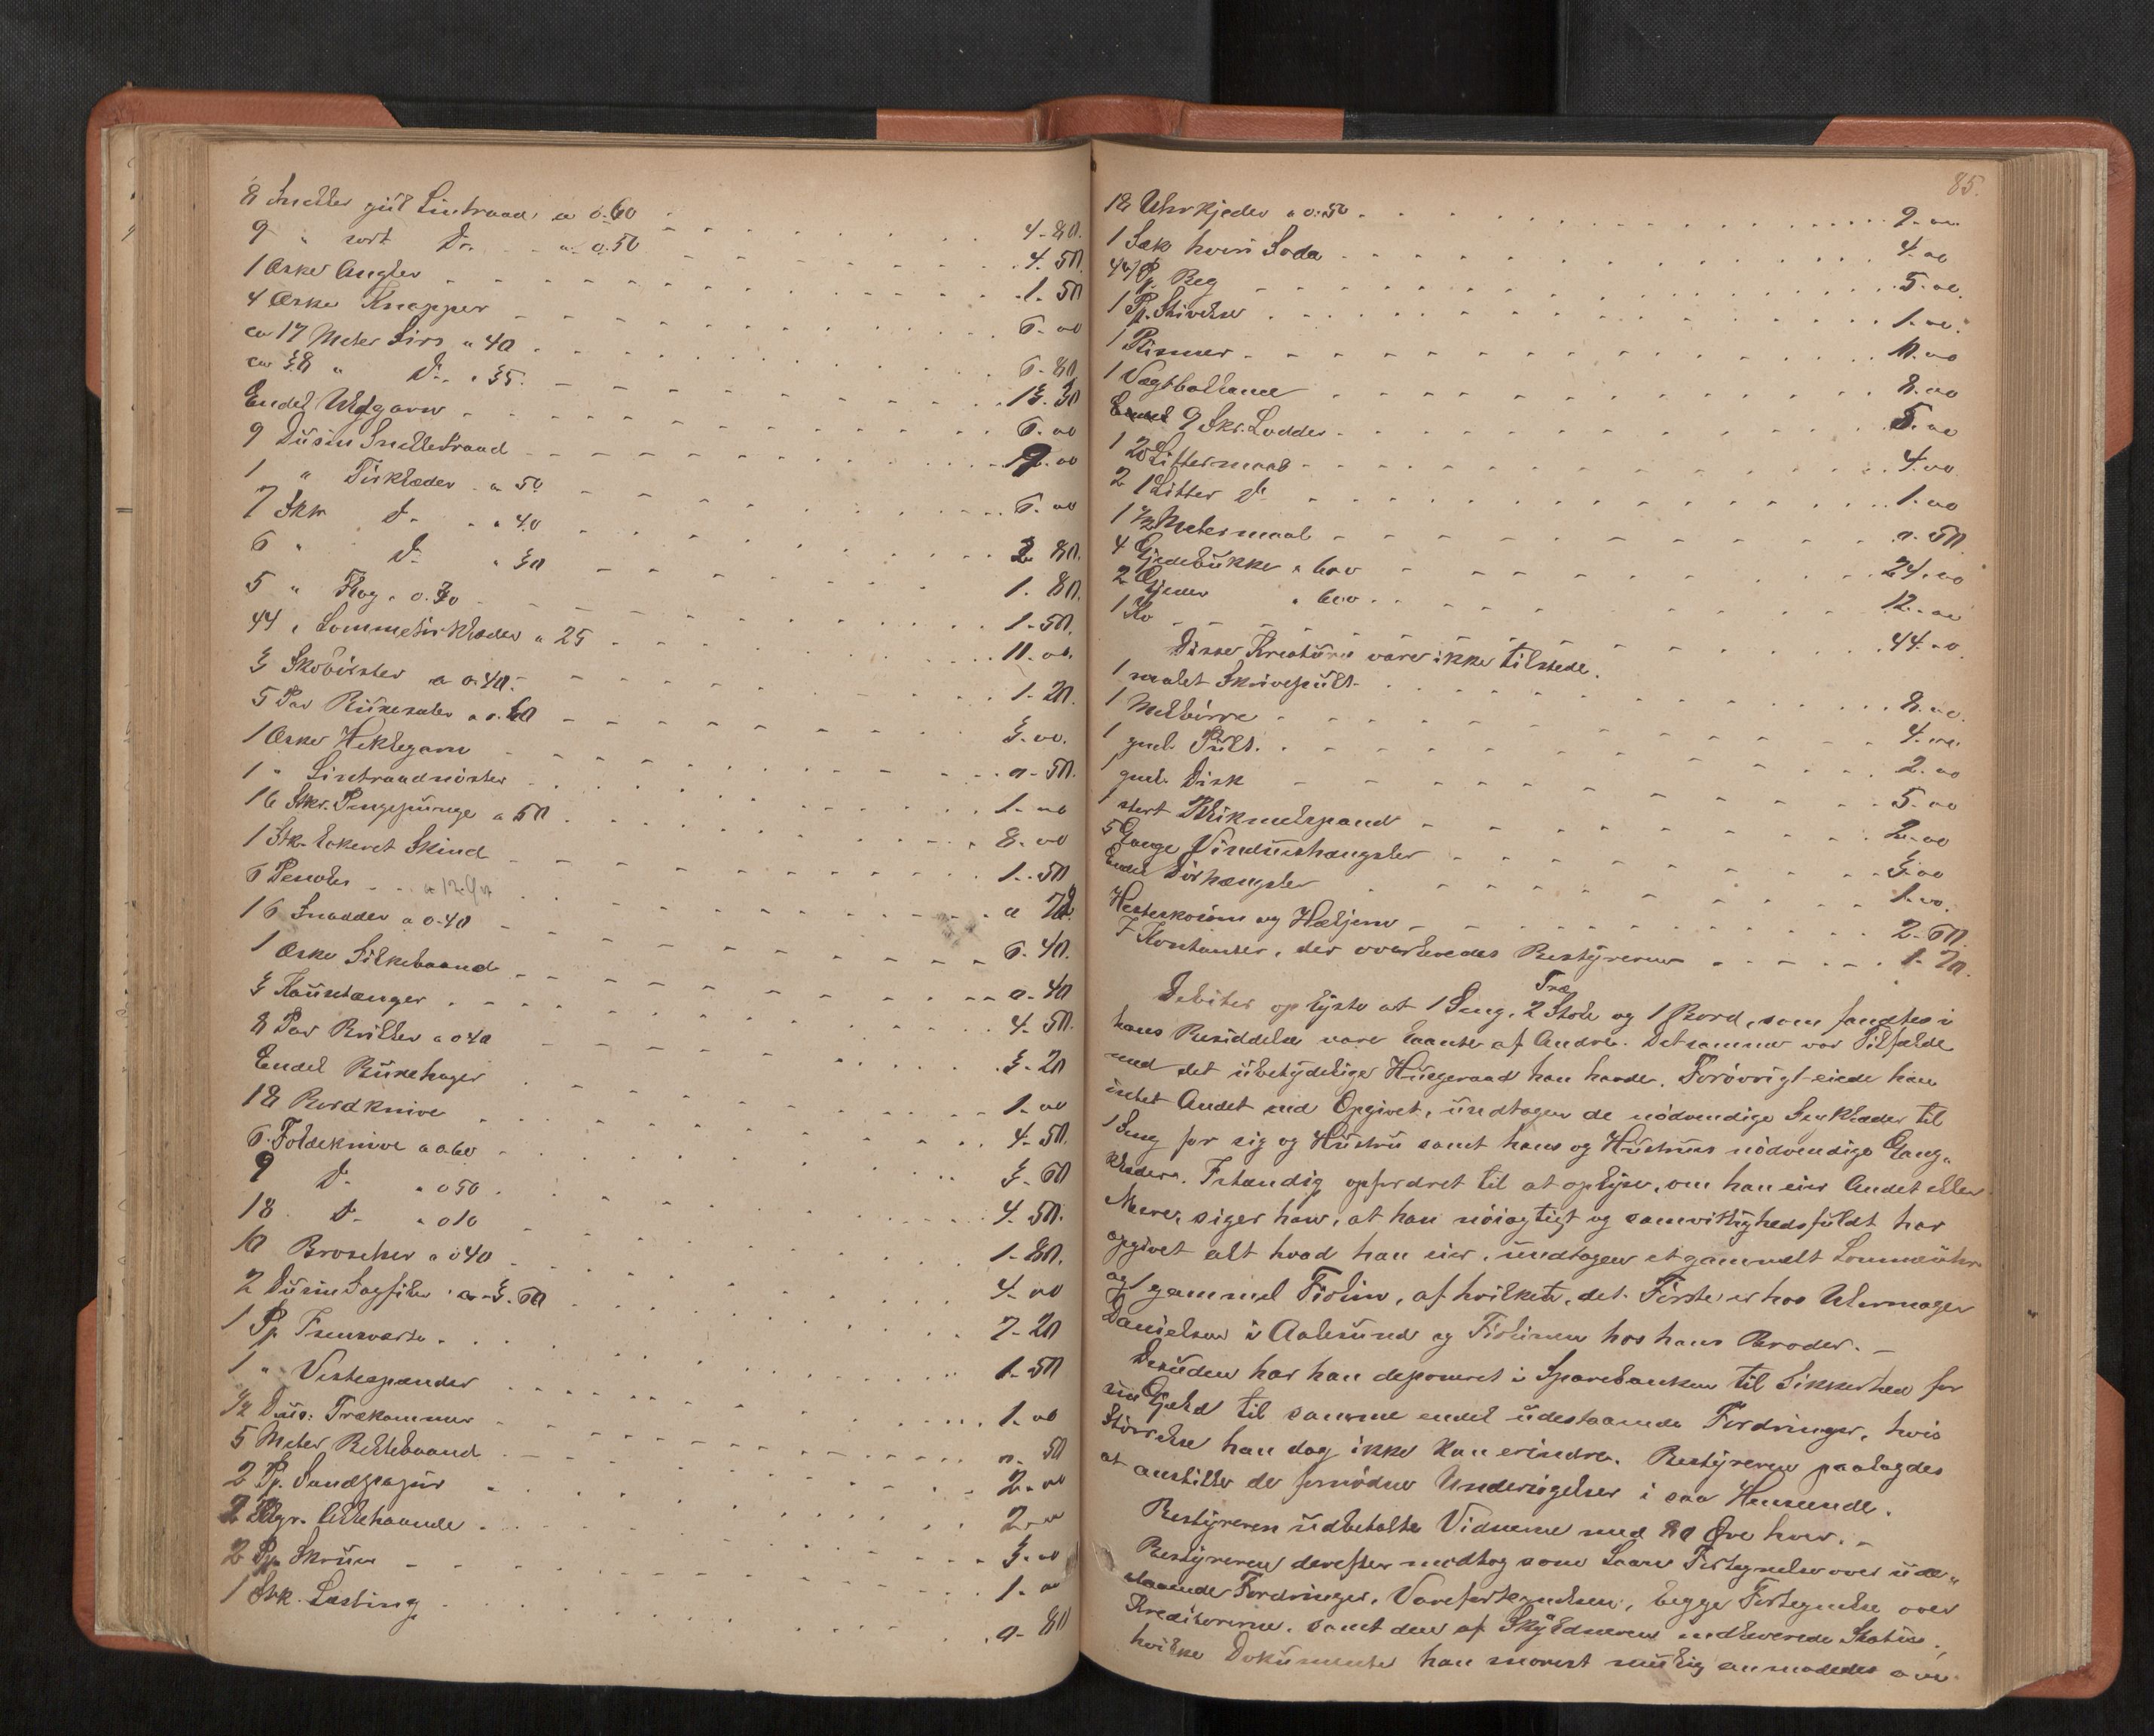 8 Sneller gul Lintraad a 0.60 4-80.
9 " sort Do. a 0.50 4.50.
1 Æske Angler 1-50
4 Æske Knapper 6-00
ca 17 Meter Sirs a 40 6-80
ca 38 " Do. a 35. 13.30
Endel Uldgarn 6.00
9 Dusin Snelletraad 9.00
1 " Tørklæder a 50 6-00
7 Stkr Do a 40 2 80.
6 " Do a 30 1.80.
5 " Flag a 0.30 1-50.
44 " Lommetørklæder a 25 11.00.
3 Skobørster a 0.40. 1-20.
5 Par Buxesæler a 0.60 3.00.
1 Æske Heklegarn 0-50.
1 " Lintraadnøster 1-00
16 Stkr. Pengepunge a 50 8-00
1 Stk. lakeret Skind 1-50
6 Pensler a 12 Øre 0 72
16 Snadder a 0-40 6.40.
1 Æske Silkebaand 0-40
3 Knivtænger 4-50.
8 Par Briller a 040 3-20
Endel Buxehager 1-00
18 Bordknive 4-50.
6 Foldeknive a 060 3-60
9 Do a 050 4.50.
18 Do a 010 1-80.
10 Broscher a 040 4-00
2 Dusin Sagfiler a 3.60 7-20
1 Pk 1-50
1 " Vestespænder 1-00
1/2 Dus. Trækammer 0-50
5 Meter Beltebaand 2-00
2 Pk. Sandpapir 2-00
2 3-00
2 Pk. Skruer 1-00
1 Stk. Lasting 0-80
85.
18 Uhrkjeder a 0.50 9-00
1 Sæk hvid Soda 4-00
Beg 5-00.
1 Pk. Stivelse 1-00.
1 Bismer 10.00
1 Vægtballance 8.00
9 Skr. Lodder 5.00
1 20 Littermaal 4.00
2 1 Litter Do 1.00
1 1/2 Metermaal 0.50
4 Gjedebukke a 6.00 24.00
2 Gjeder a 6.00 12-00
1 Ko 44.00
Disse Kreaturer vare ikke tilstede.
1 malet Skrivepult 8.00.
1 Melbørge 4.00
1 gml. Pult. 2.00
1 gml. Disk 5-00
1 stort Blikmelspand 2-00
5 Gange Vindueshængsler 3.00
Endel Dørhængsler 1-00.
Hesteskosøm og Hæljern 2-60.
I Kontanter, der overleveredes Bestyreren 1-70.
Debitor oplyste at 1 Seng, 2 Træ Stole og 1 Bord, som fandtes i
hans Besiddelse vare laante af Andre. Detsamme var Tilfælde
med det ubetydelige Husgeraad han havde. Forøvrigt eiede han
intet Andet end Opgivet, undtagen de nødvendige Senklæder til
1 Seng for sig og Hustru samt hans og Hustrus nødvendige Gang„
klæder. Instændig opfordret til at oplyse, om han eier Andet eller
Mere, siger han, at han nøiagtigt og samvittighedsfuldt har
opgivet alt hvad han eier, undtagen et gammelt Lommeuhr
og 1 gammel Fiolin, af hvilke, det Første er hos Uhrmager
Danielsen i Aalesund og Fiolinen hos hans Broder. -
Desuden har han deponeret i Sparebanken til Sikkerhed for
sin Gjæld til samme endel udestaaende Fordringer, hvis
Størrelse han dog ikke kan erindre. Bestyreren paalagdes
at anstille de fornødne Undersøgelser i saa Henseende.
Bestyreren udbetalte Vidnerne med 80 Øre hver. -
Bestyreren derefter modtog som Laan Fortegnelse over ude„
staaende Fordringer, Varefortegnelsen, begge Fortegnelse over
Kreditorerne, samt den af Skyldneren indleverede Status,
hvilke Dokumenter han snarest mulig anmodedes om